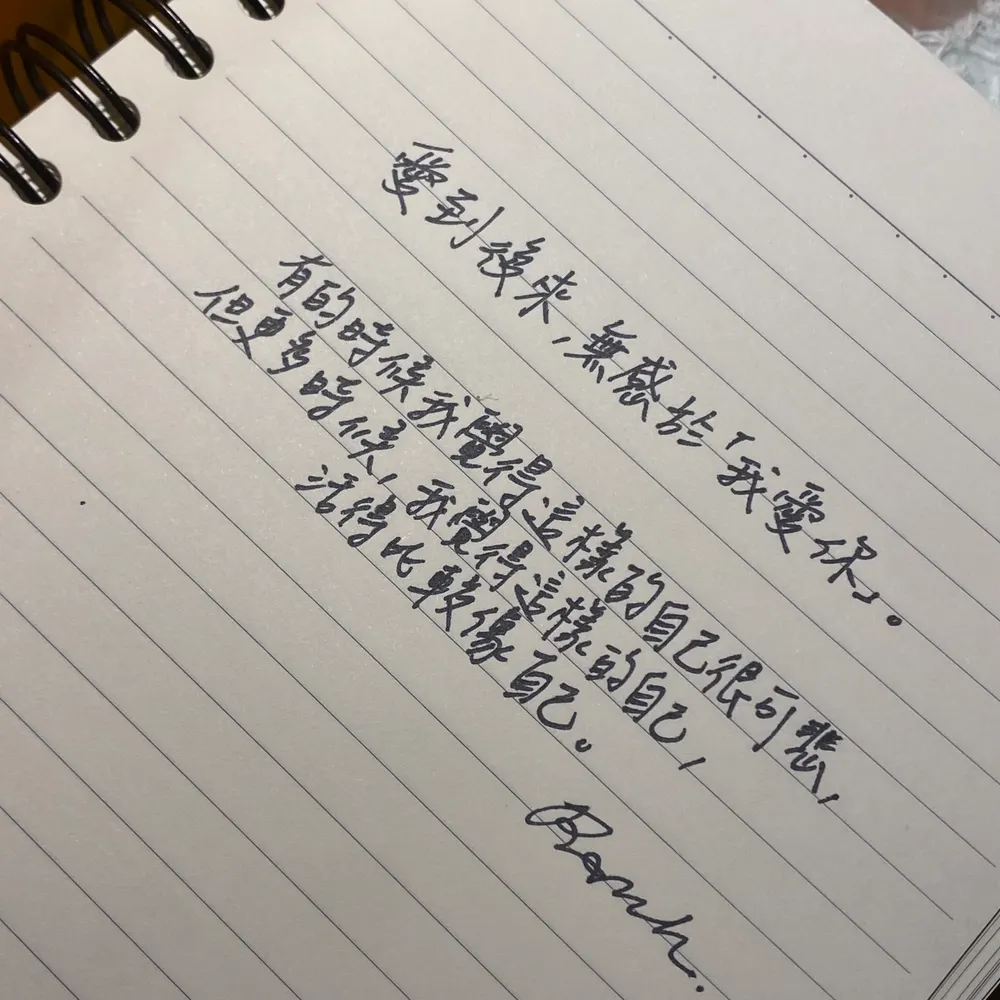 愛到後來，無感於「我愛你」。
有的時候我覺得這樣的自己很可悲，
但更多時候，我覺得這樣的自己，
活得比較像自己。